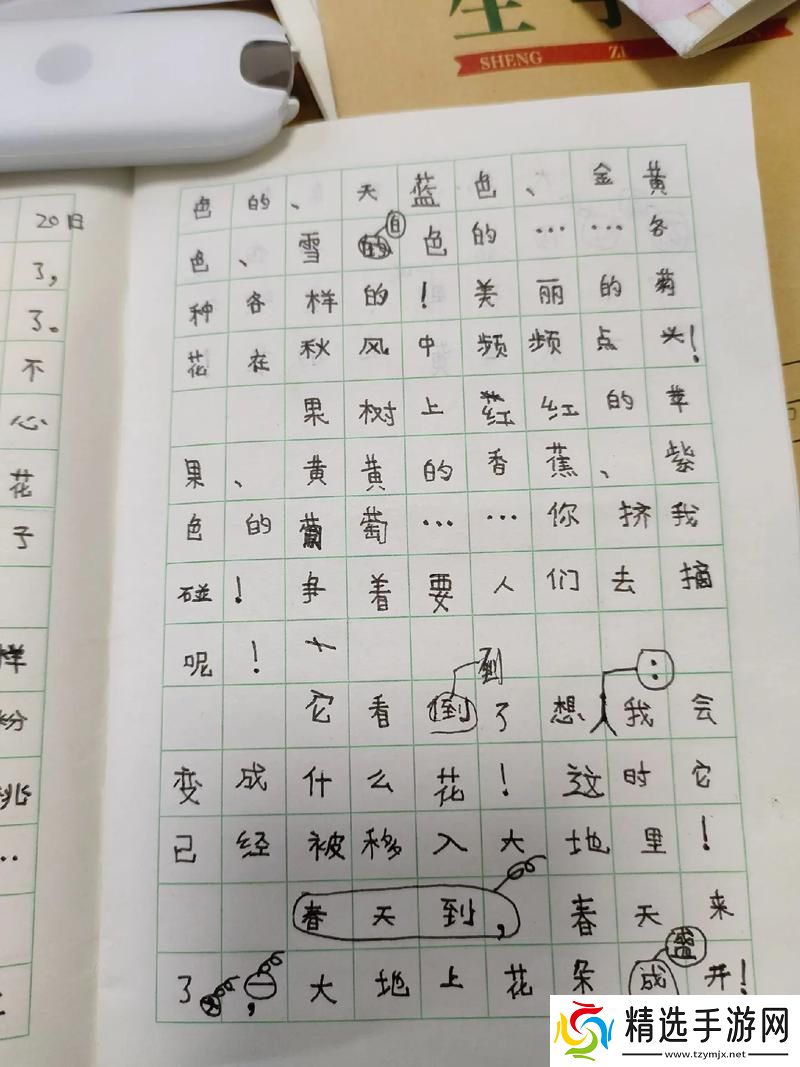 生字
SHENG ZI
20日
了,
了。
不
心
花
子
样
粉
桃
色的、天蓝色、金黄
白
色、雪的色的……各
种各样的！美丽的菊
花在秋风中频频点头！
果树上红红的苹
果、黄黄的香蕉、紫
色的葡萄……你挤我
碰！争着要人们去摘
呢！
到
：
它看倒了想我会
变成什么花！这时它
已经被移入大地里！
春天到，春天来
盛
了，大地上花朵成开！
精选手游网
www.tzymjx.net